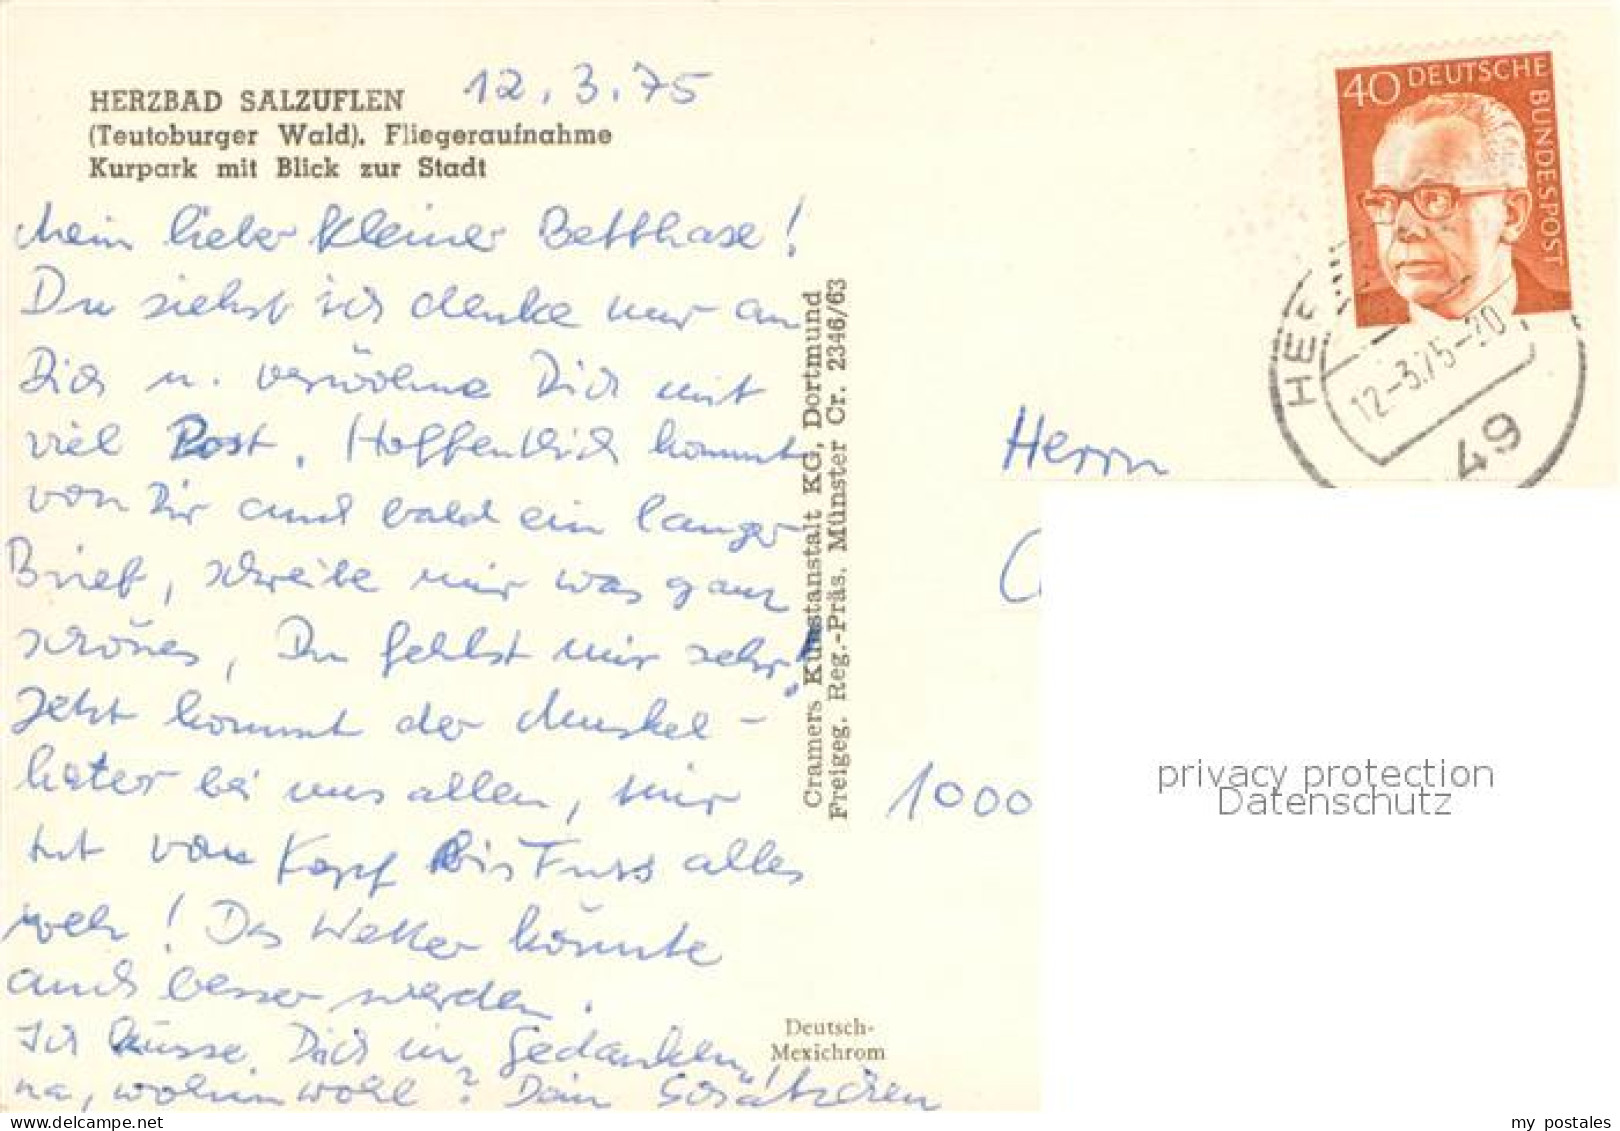 HERZBAD SALZUFLEN
(Teutoburger Wald). Fliegeraufnahme
Kurpark mit Blick zur Stadt
12.3.75
Mein lieber kleiner Betthase!
Du siehst ich denke nur an
Dich u. verwöhne Dich mit
viel Post. Hoffentlich kommt
von Dir auch bald ein langer
Brief, schreibe mir was ganz
schönes, Du fehlst mir sehr!
Jetzt kommt der Muskel-
kater bei uns allen, mir
tut von Kopf bis Fuss alles
weh! Das Wetter könnte
auch besser werden.
Ich küsse Dich in Gedanken,
na, wohin wohl? Dein Schätzchen
Cramers Kunstanstalt KG, Dortmund
Freigeg. Reg.-Präs. Münster Cr. 2346/63
Deutsch-
Mexichrom
40 DEUTSCHE
BUNDESPOST
12.-3.75-20
49
Herrn
1000
privacy protection
Datenschutz
my postales